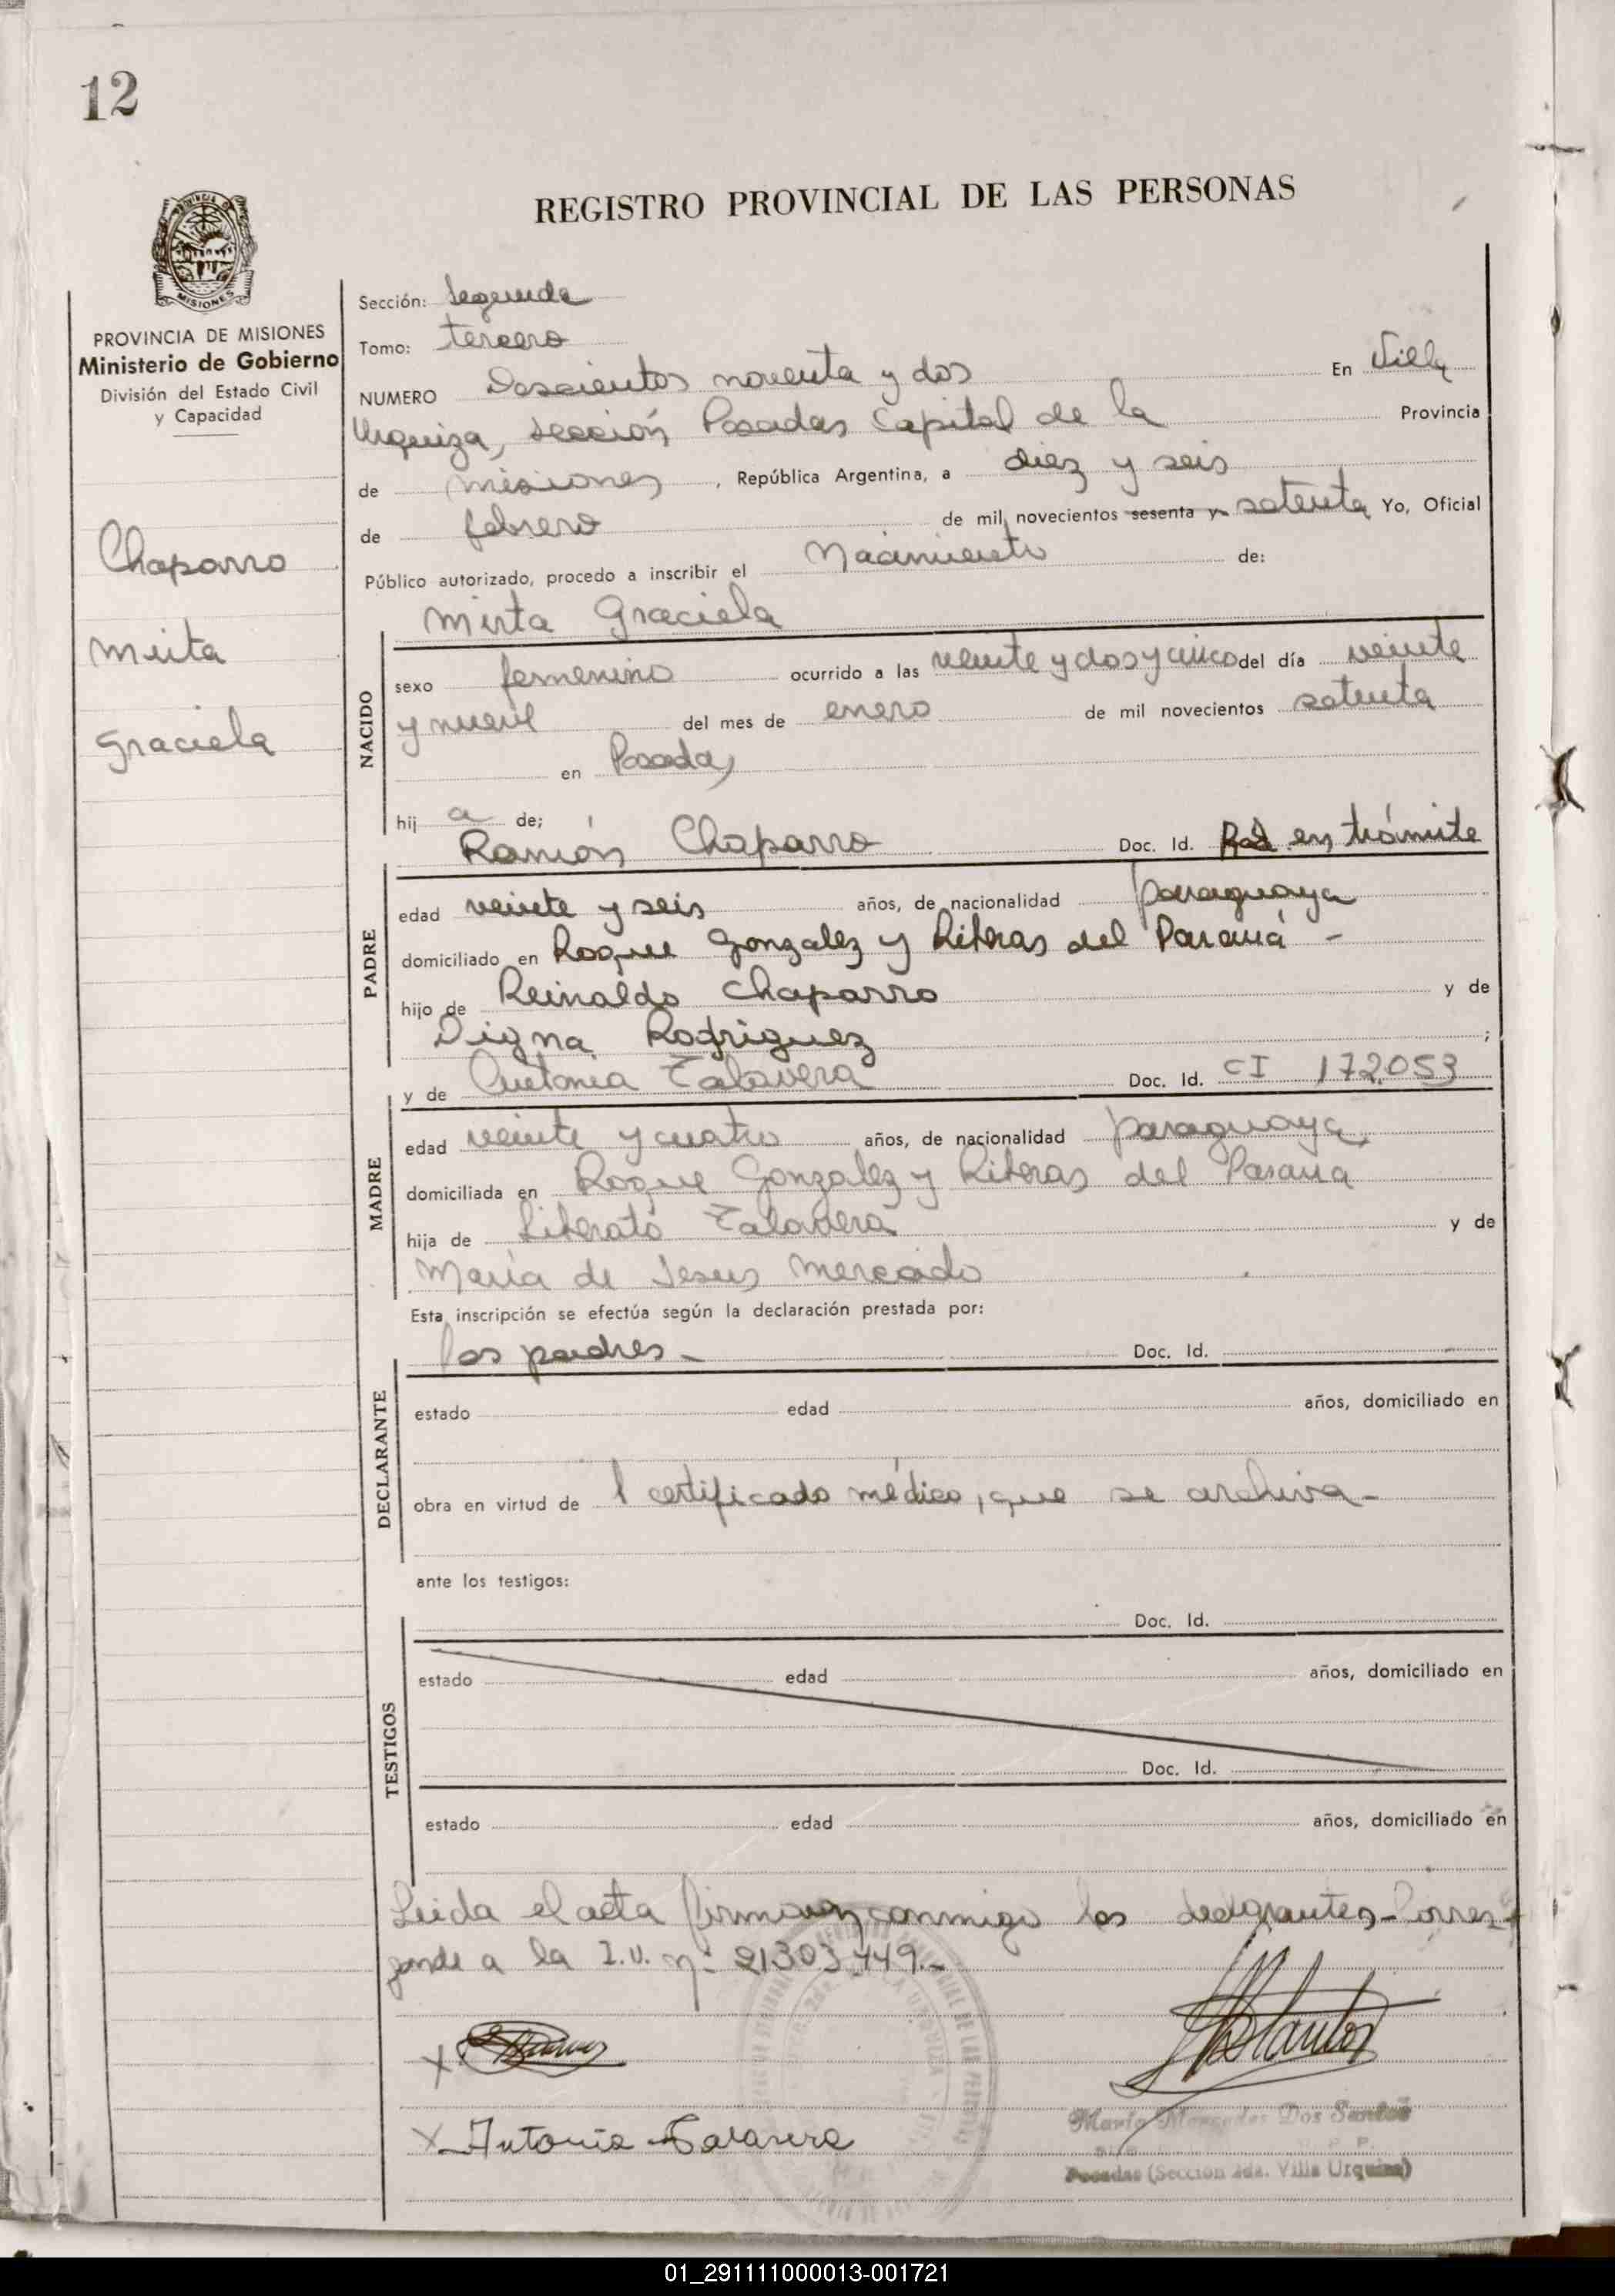 12
REGISTRO PROVINCIAL DE LAS PERSONAS
MISIONES
PROVINCIA DE MISIONES
Ministerio de Gobierno
División del Estado Civil
y Capacidad
Chaparro
Mirta
Graciela
Sección: Segunda
Tomo: tercero
NUMERO Doscientos noventa y dos En Villa
Urquiza, sección Posadas Capital de la Provincia
de misiones, República Argentina, a diez y seis
de febrero de mil novecientos sesenta y setenta Yo, Oficial
Público autorizado, procedo a inscribir el Nacimiento de:
Mirta Graciela
NACIDO
sexo femenino ocurrido a las veinte y dos y cinco del día veinte
y nueve del mes de enero de mil novecientos setenta
en Posadas
hij a de;
Ramón Chaparro Doc. Id. en trámite
PADRE
edad veinte y seis años, de nacionalidad paraguaya
domiciliado en Roque Gonzalez y Riberas del Paraná -
hijo de Reinaldo Chaparro y de
Digna Rodriguez ;
y de Antonia Talavera Doc. Id. CI 172.053
MADRE
edad veinte y cuatro años, de nacionalidad paraguaya
domiciliada en Roque Gonzalez y Riberas del Parana
hija de Liberato Talavera y de
María de Jesus Mercado
Esta inscripción se efectúa según la declaración prestada por:
los padres - Doc. Id.
DECLARANTE
estado edad años, domiciliado en
obra en virtud de l certificado médico, que se archiva -
ante los testigos:
Doc. Id.
TESTIGOS
estado edad años, domiciliado en
Doc. Id.
estado edad años, domiciliado en
Leida el acta firman conmigo los declarantes - Corres-
ponde a la I.U. nº 21303.449.-
X
X Antonia Talavera
María Mercedes Dos Santos
Posadas (Sección 2da. Villa Urquiza)
01_291111000013-001721